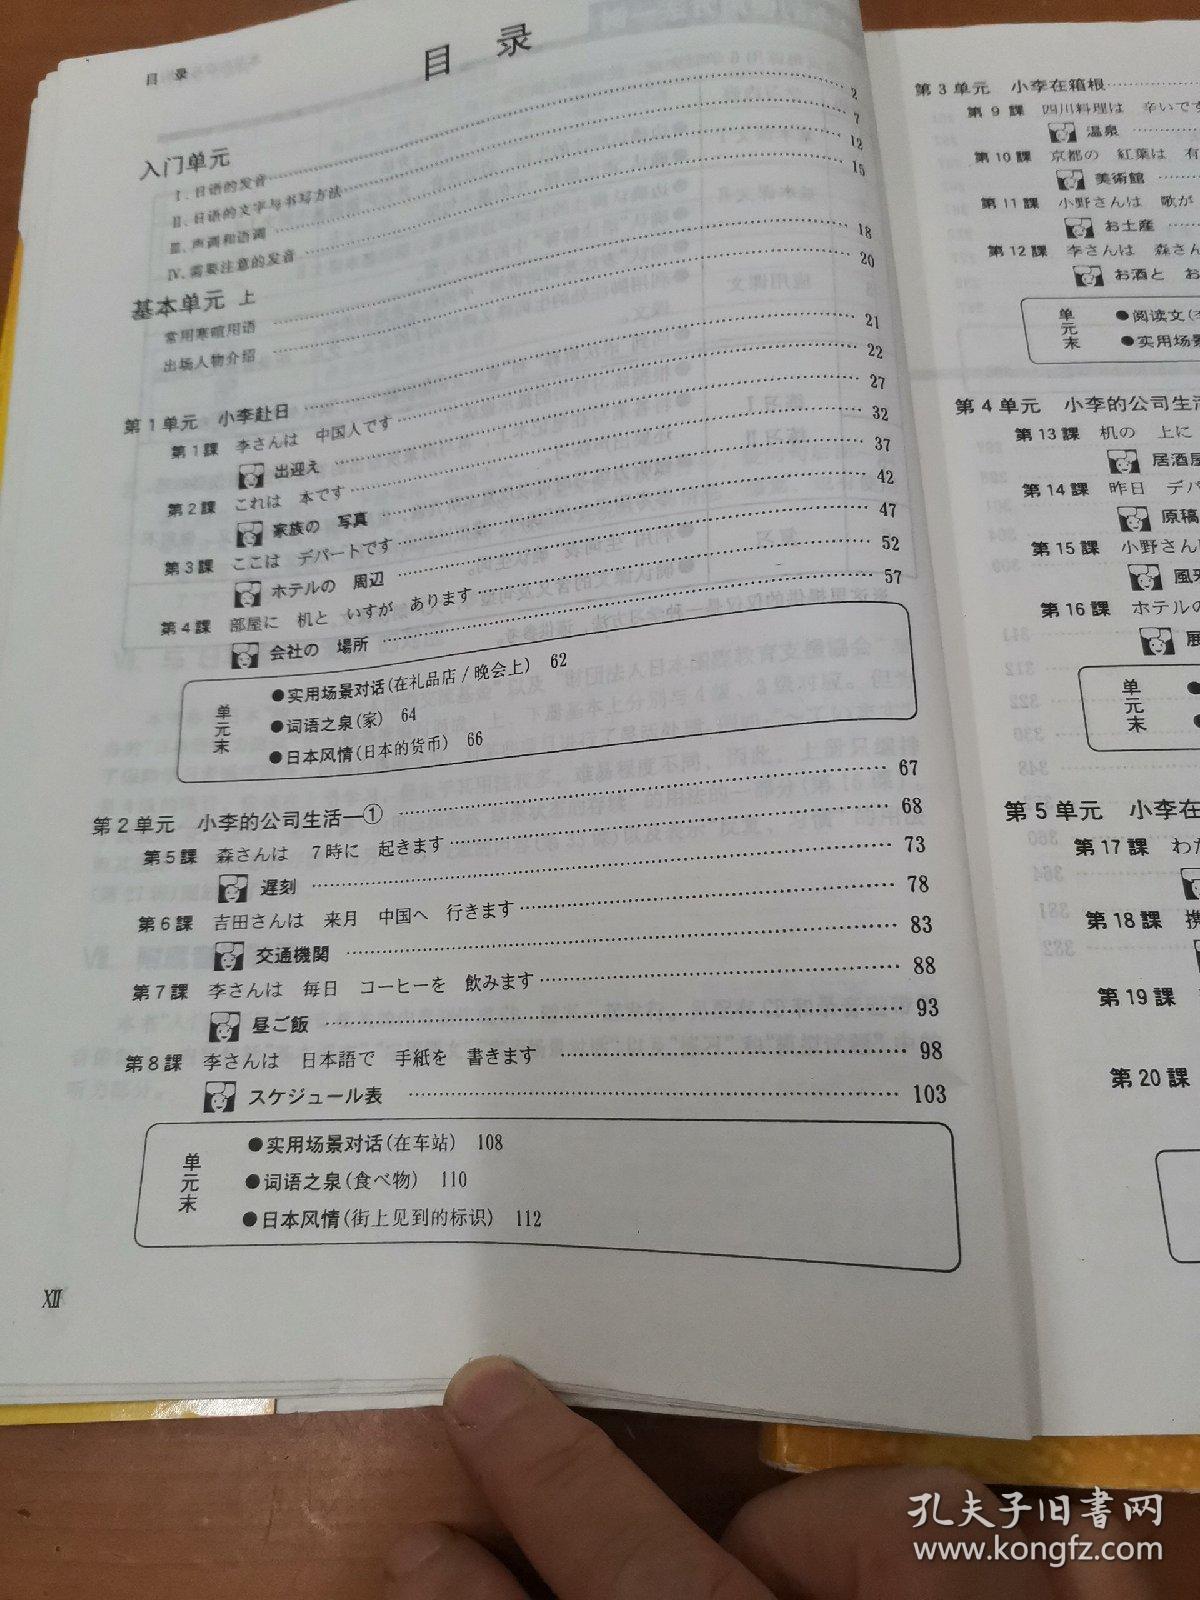 目 录
目 录
入门单元
Ⅰ. 日语的发音 2
Ⅱ. 日语的文字与书写方法 7
Ⅲ. 声调和语调 12
Ⅳ. 需要注意的发音 15
基本单元 上
常用寒暄用语 18
出场人物介绍 20
第1单元 小李赴日 21
第1課 李さんは 中国人です 22
出迎え 27
第2課 これは 本です 32
家族の 写真 37
第3課 ここは デパートです 42
ホテルの 周辺 47
第4課 部屋に 机と いすが あります 52
会社の 場所 57
单元末
●实用场景对话(在礼品店/晚会上) 62
●词语之泉(家) 64
●日本风情(日本的货币) 66
第2单元 小李的公司生活—① 67
第5課 森さんは 7時に 起きます 68
遅刻 73
第6課 吉田さんは 来月 中国へ 行きます 78
交通機関 83
第7課 李さんは 毎日 コーヒーを 飲みます 88
昼ご飯 93
第8課 李さんは 日本語で 手紙を 書きます 98
スケジュール表 103
单元末
●实用场景对话(在车站) 108
●词语之泉(食べ物) 110
●日本风情(街上见到的标识) 112
XII
第3单元 小李在箱根
第9課 四川料理は 辛いです
温泉
第10課 京都の 紅葉は 有
美術館
第11課 小野さんは 歌が
お土産
第12課 李さんは 森さん
お酒と お
单元末
●阅读文(
●实用场景
第4单元 小李的公司生活
第13課 机の 上に
居酒屋
第14課 昨日 デパ
原稿
第15課 小野さん
風邪
第16課 ホテルの
展
单元末
第5单元 小李在
第17課 わた
第18課 携
第19課
第20課
孔夫子旧书网
www.kongfz.com